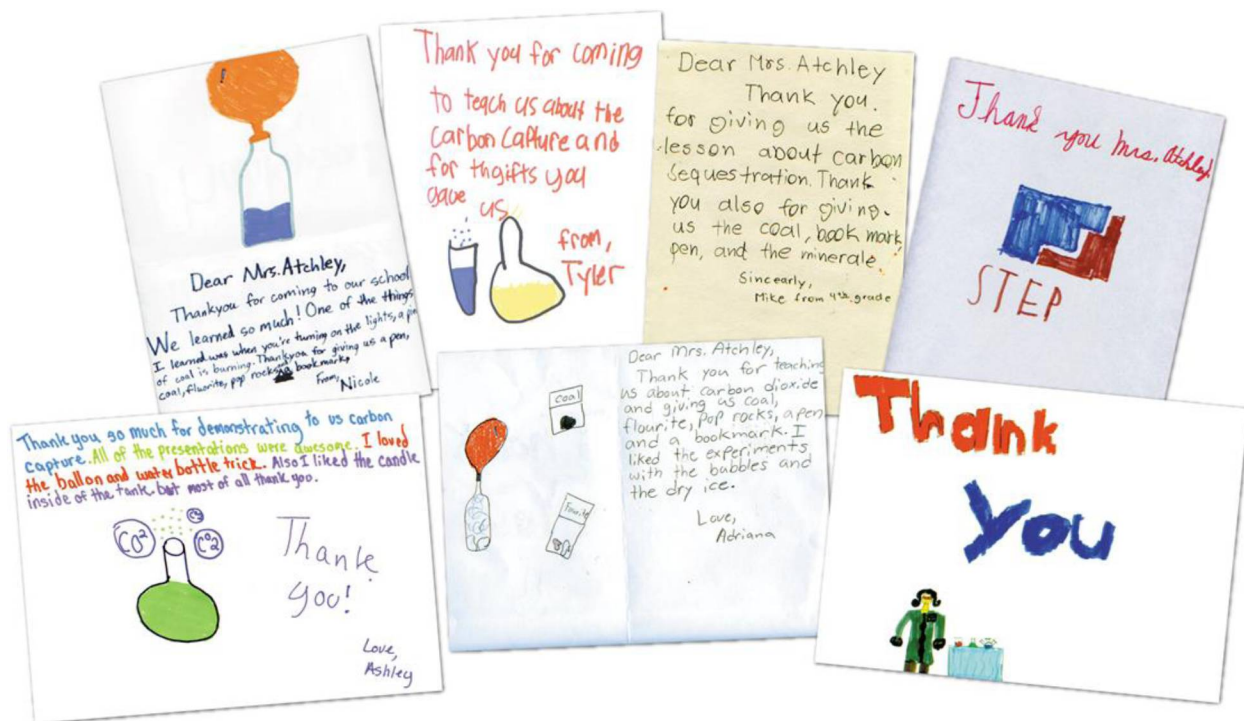 Dear Mrs. Atchley,
Thankyou for coming to our school
We learned so much! One of the things
I learned was when you're turning on the lights, a
of coal is burning. Thankyou for giving us a pen,
coal, fluorite, pop rocks, a bookmark.
From, Nicole
Thank you for coming
to teach us about the
Carbon Capture and
for thgifts you
gave us
from,
Tyler
Dear Mrs. Atchley
Thank you.
for giving us the
lesson about carbon
Sequestration. Thank
you also for giving.
us the coal, book mark,
pen, and the minerale.
Sincearly,
Mike from 4th grade
Thank you Mrs. Atchley.
STEP
Thank you so much for demonstrating to us carbon
capture. All of the presentations were awesome. I loved
the ballon and water bottle trick. Also I liked the candle
inside of the tank. but most of all thank yoo.
CO2
CO2
CO2
Thank
you!
Love,
Ashley
coal
Dear Mrs. Atchley,
Thank you for teaching
us about carbon dioxide
and giving us coal,
flourite, pop rocks, a pen
and a bookmark. I
liked the experiments
with the bubbles and
the dry ice.
Love,
Adriana
Thank
you